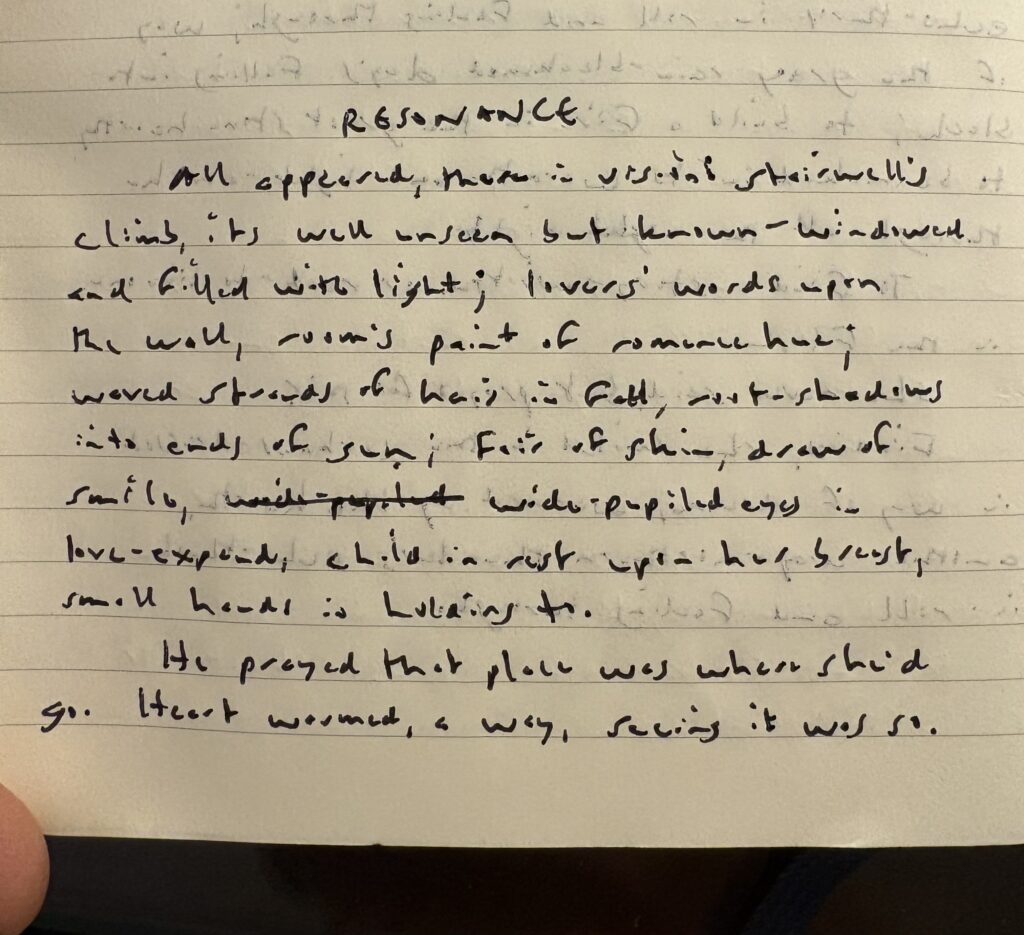 RESONANCE
All appeared, there in vision's stairwell's
climb, its well unseen but known – windowed
and filled with light; lovers' words upon
the wall, room's paint of romance hue;
waved strands of hair in fall, root-shadows
into ends of sun; fair of skin, draw of
smile, wide-pupiled wide-pupiled eyes in
love-expand, child in rest upon her breast,
small hands in holding to.
He prayed that place was where she'd
go. Heart warmed, a way, seeing it was so.